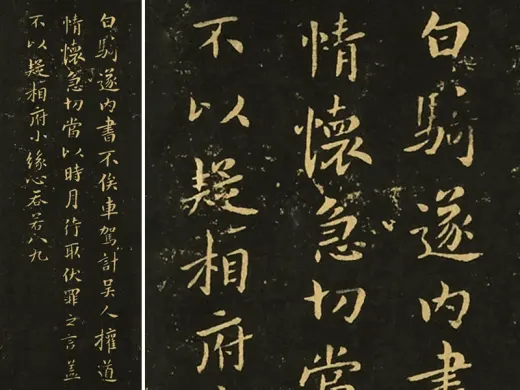 白騎遂内書不俟車駕計吴人擁道
情懷急切當以時月行取伏罪之言盖
不以疑相府小緣心吞若八九
白騎遂内書
情懷急切當
不以疑相府